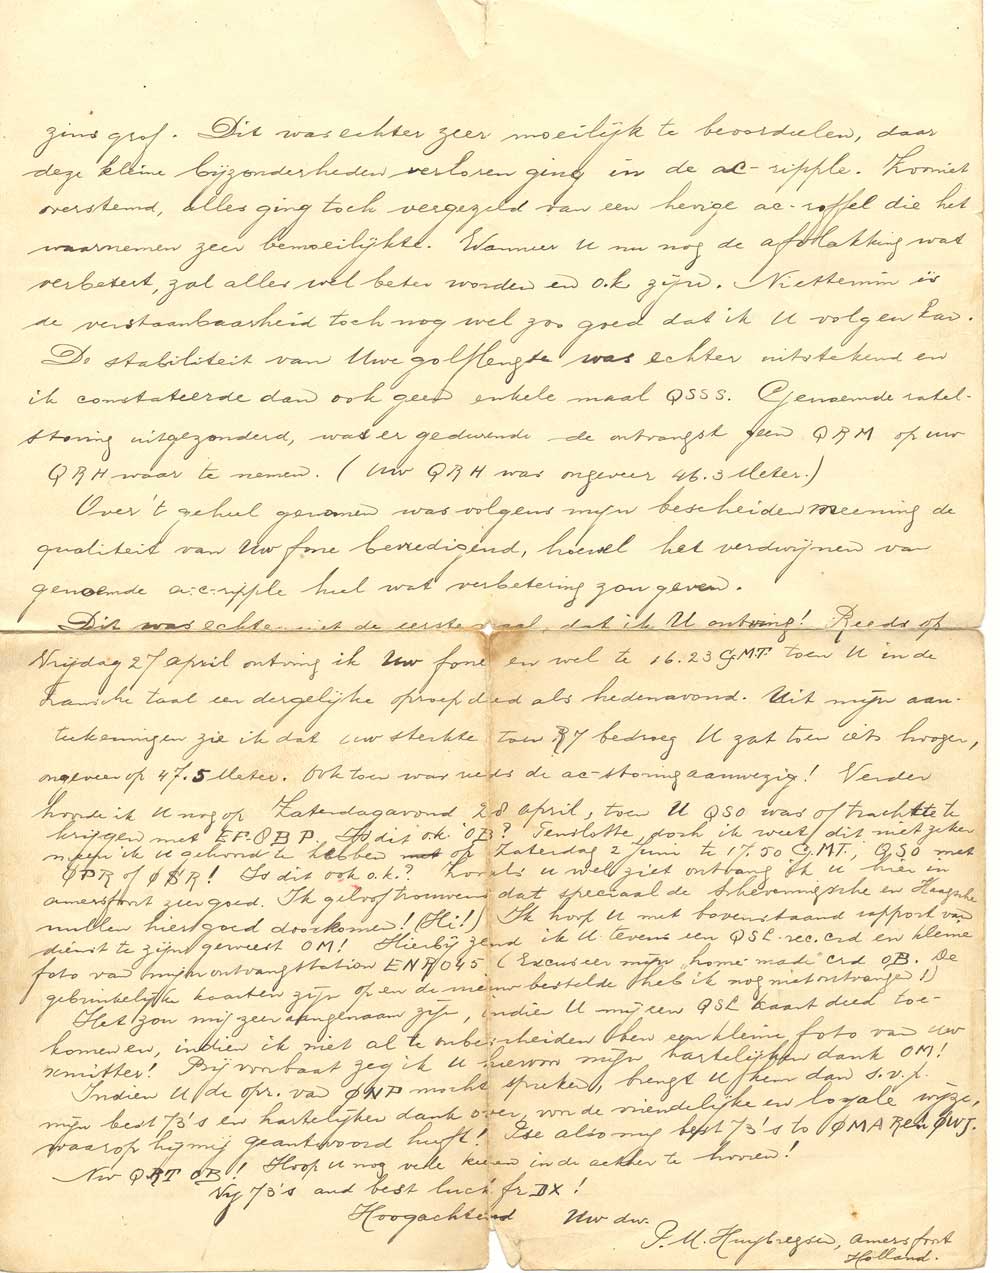 zins grof. Dit was echter zeer moeilijk te beoordeelen, daar
deze kleine bijzonderheden verloren ging in de ac-ripple. Zooniet
overstemd, alles ging toch vergezeld van een hevige ac-roffel die het
waarnemen zeer bemoeilijkte. Wanneer U nu nog de afvlakking wat
verbetert, zal alles wel beter worden en o.k. zijn. Niettemin is
de verstaanbaarheid toch nog wel zoo goed dat ik U volgen kan.
De stabiliteit van Uwe golflengte was echter uitstekend en
ik constateerde dan ook geen enkele maal QSSS. Genoemde ratel-
storing uitgezonderd, was er gedurende de ontvangst geen QRM op uw
QRH waar te nemen. (Uw QRH was ongeveer 46.3 Meter.)
Over 't geheel genomen was volgens mijn bescheiden meening de
qualiteit van Uw fone bevredigend, hoewel het verdwijnen van
genoemde a-c-ripple heel wat verbetering zou geven.
Dit was echter niet de eerste maal, dat ik U ontving! Reeds op
Vrijdag 27 april ontving ik Uw fone en wel te 16.23 GMT toen U in de
Fransche taal een dergelijke oproep deed als hedenavond. Uit mijn aan-
teekeningen zie ik dat uw sterkte toen R7 bedroeg U zat toen iets hooger,
ongeveer op 47.5 Meter. Ook toen was reeds de ac-storing aanwezig! Verder
hoorde ik U nog op Zaterdagavond 28 april, toen U QSO was of trachtte te
krijgen met EF-8BP. Is dit ok OB? Tenslotte, doch ik weet dit niet zeker
meen ik U gehoord te hebben op Zaterdag 2 Juni te 17.50 G.M.T., QSO met
ØPR of ØSR! Is dit ook o.k.? Zooals U wel ziet ontvang ik U hier in
amersfoort zeer goed. Ik geloof trouwens dat speciaal de Scheveningsche en Haagsche
nullen hier goed doorkomen! (Hi!) Ik hoop U met bovenstaand rapport van
dienst te zijn geweest OM! Hierbij zend ik U tevens een QSL-rec.crd en kleine
foto van mijn ontvangstation ENR045 (Excuseer mijn "home-made" crd OB. De
gebruikelijke kaarten zijn op en de nieuw bestelde heb ik nog niet ontvangen!)
Het zou mij zeer aangenaam zijn, indien U mij een QSL kaart deed toe-
komen en, indien ik niet al te onbescheiden ben een kleine foto van uw
xmitter! Bij voorbaat zeg ik U hiervoor mijn hartelijken dank OM!
Indien U de opr. van ØNP mocht spreken, brengt U hem dan s.v.p.
mijn best 73's en hartelijken dank over, voor de vriendelijke en loyale wijze,
waarop hij mij geantwoord heeft! Pse also my best 73's to ØMAR en ØWJ.
Nw QRT OB! Hoop U nog vele keeren in de aether te hooren!
Vy 73's and best luck fr DX!
Hoogachtend Uw dw.
P. M. Huybregsen, amersfoort
Holland.